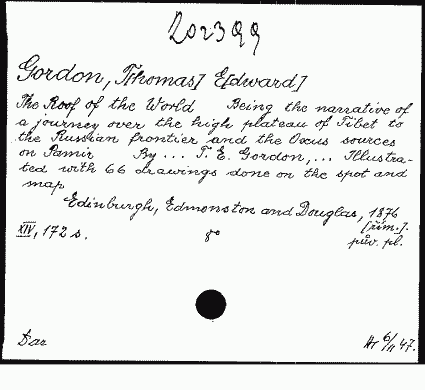 202399
Gordon, T[homas] E[dward]
The Roof of the World Being the narrative of
a journey over the high plateau of Tibet to
the Russian frontier and the Oxus sources
on Pamir By ... T. E. Gordon, ... Illustra-
ted with 66 drawings done on the spot and
map
Edinburgh, Edmonston and Douglas, 1876
[řím.].
XIV, 172 s. 8° pův. pl.
Dar Hr 6/II 47.